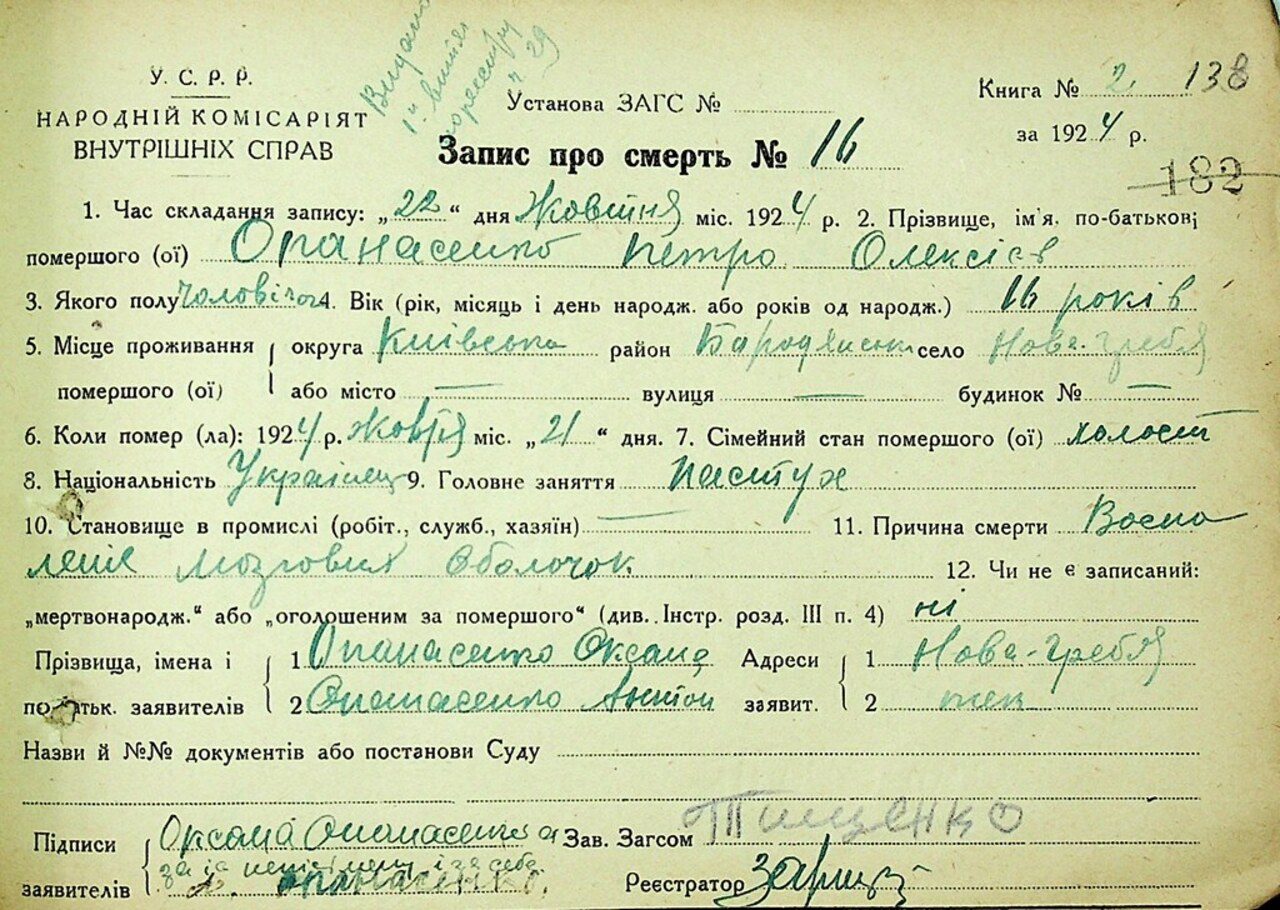 У. С. Р. Р.
НАРОДНІЙ КОМІСАРІЯТ
ВНУТРІШНІХ СПРАВ
Видано
Установа ЗАГС №
Книга № 2. 138
за 1924 р.
182
Запис про смерть № 16
1. Час складання запису: „22“ дня Жовтня міс. 1924 р. 2. Прізвище, ім'я, по-батькові
помершого (ої) Опанасенко Петро Олексієв
3. Якого полу Чоловічого 4. Вік (рік, місяць і день народж. або років од народж.) 16 років
5. Місце проживання округа Київська район Бородянськ село Нова-Гребля
помершого (ої) або місто — вулиця — будинок № —
6. Коли помер (ла): 1924 р. Жовтня міс. „21“ дня. 7. Сімейний стан помершого (ої) холост
8. Національність Українец 9. Головне заняття Пастух
10. Становище в промислі (робіт., служб., хазяїн) — 11. Причина смерти Воспа
леніє мозгових оболочок 12. Чи не є записаний:
„мертвонародж.“ або „оголошеним за помершого“ (див. Інстр. розд. III п. 4) ні
Прізвища, імена і 1 Опанасенко Оксана Адреси 1 Нова-Гребля
по-батьк. заявителів 2 Опанасенко Антон заявит. 2
Назви й №№ документів або постанови Суду
Підписи Оксана Опанасенко Зав. Загсом Тищенко
за себе
заявителів А. Опанасенко. Реєстратор